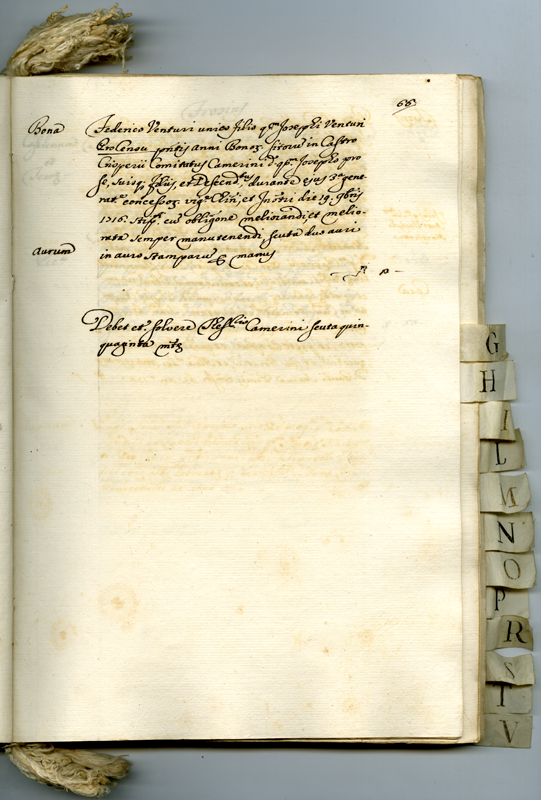 66
Bona
Federico Venturi unico filio qm Josephi Venturi
Pro Censu pntis anni Bonoȝ sitoruȝ in Castro
Crisperii Comitatus Camerini dº qm Josepho pro
se, suisq filiis, et Descendbus, durante ejus 3ª gene
ratne concessoȝ vigᵉ Instri die 19. 9bris
1716. stipti cuȝ obligone meliorandi, et melio-
rata semper manutenendi scuta duo auri
Aurum
in auro stamparuȝ manus
Debet etº solvere Camerini scuta quin-
quaginta mtȝ
G
H
I
L
M
N
O
P
R
S
T
V